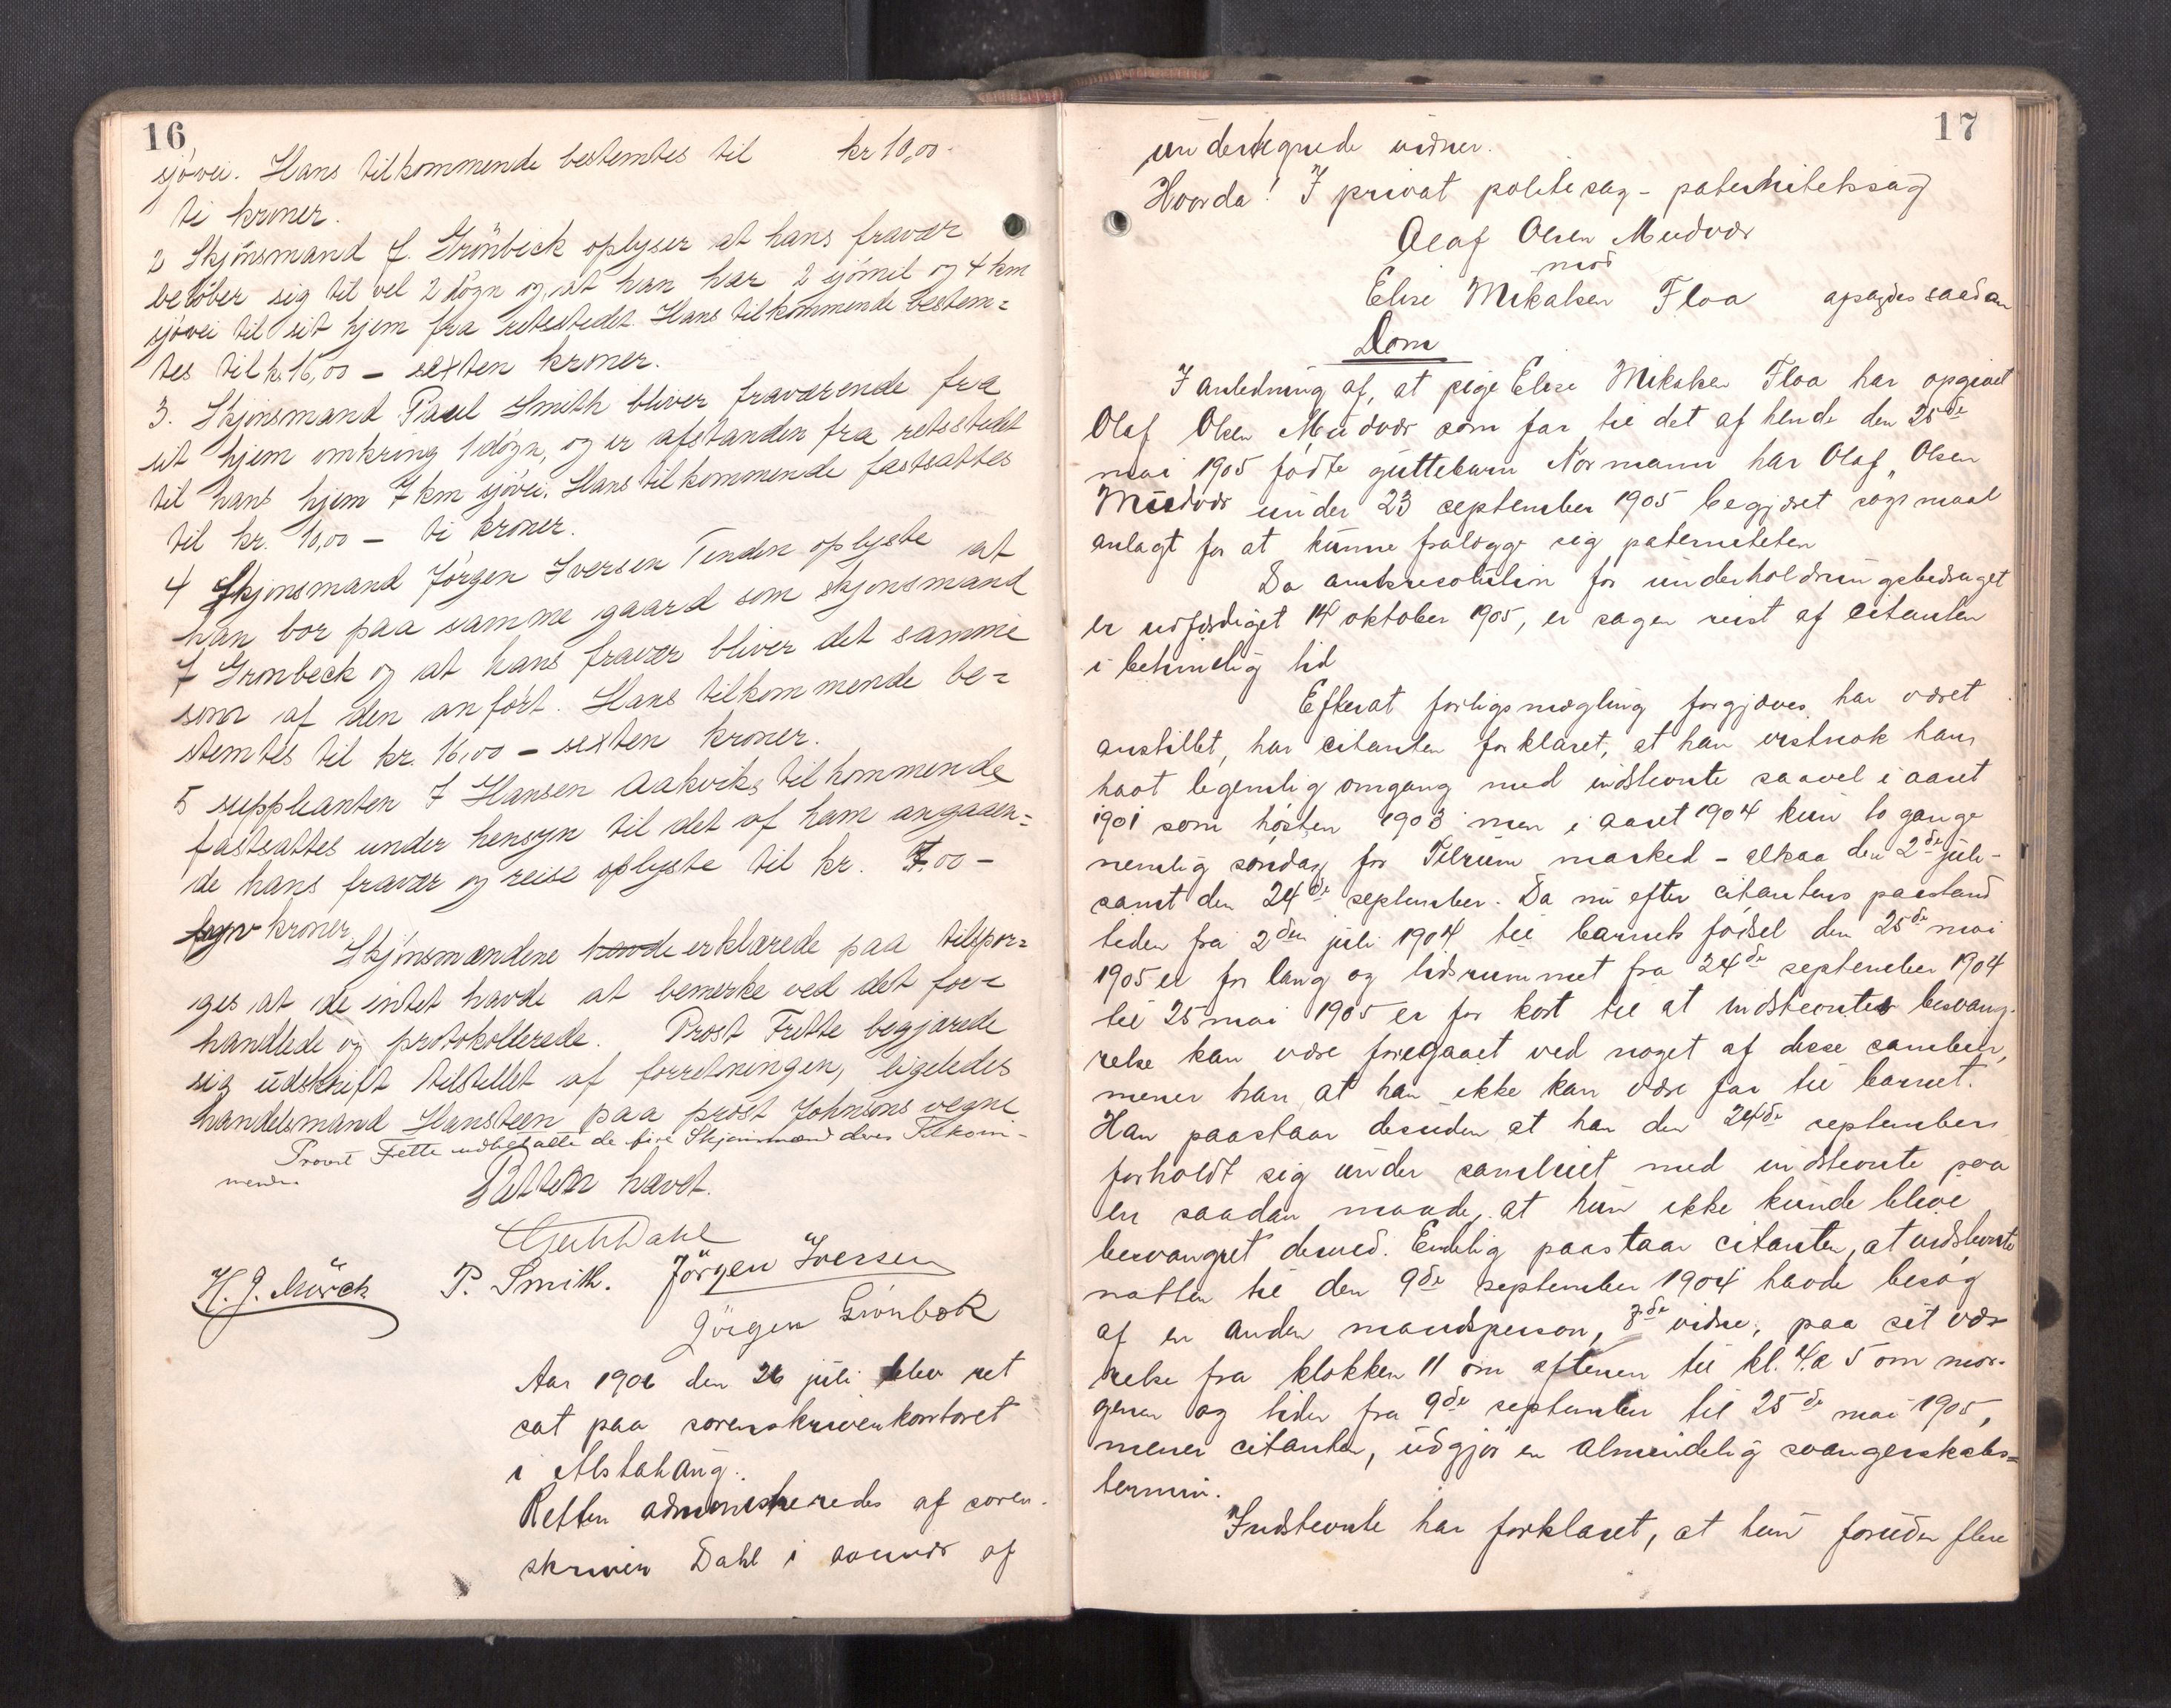 16
sjövei. Hans tilkommende bestemtes til kr 10,00-
ti kroner.
2 Skjönsmand J. Grönbeck oplyser at hans fravær
belöber sig til vel 2 dögn og at han har 2 sjömil og 4 km
sjövei til sit hjem fra retsstedet. Hans tilkommende bestem=
tes til kr 16,00 - sexten kroner.
3. Skjönsmand Paul Smith bliver fraværende fra
sit hjem omkring 1 dögn, og er afstanden fra retsstedet
til hans hjem 7 km sjövei. Hans tilkommende fastsattes
til kr. 10,00 - ti kroner.
4 Skjonsmand Jörgen Iversen Tenden oplyste at
han bor paa samme gaard som skjonsmand
J Gronbeck og at hans fravær bliver det samme
som af den anfört. Hans tilkommende be=
stemtes til kr. 16,00 - sexten kroner.
5 suppleanten J Hansen Aakviks tilkommende
fastsattes under hensyn til det af ham angaaen=
de hans fravær og reise oplyste til kr. 7.00 -
syv kroner.
Skjönsmændene havde erklærede paa tilspör=
ges at de intet havde at bemerke ved det for=
handlede og protokollerede. Prost Frette begjærede
sig udskrift tilstillet af forretningen, ligeledes
handelsmand Hansteen paa prost Johnsons vegne
Provst Frette udbetalte de fire Skjønsmænd deres Tilkom-
mende.
Retten hævet.
Dahl
H. J. Mörch P. Smith. Jörgen Iversen
Jörgen Grönbæk
Aar 1906 den 26 juli blev ret
sat paa sorenskriverkontoret
i Alstahaug.
Retten administreredes af soren-
skriver Dahl i nærvær af
17
undertegnede vidner.
Hvorda! I privat politisag - paternitetssag
Olaf Olsen Mudvær
mod
Elise Mikalsen Floa afsagdes saadan
Dom
I anledning af, at pige Elise Mikalsen Floa har opgivet
Olaf Olsen Mudvær som far til det af hende den 25de
mai 1905 födte guttebarn Normann har Olaf Olsen
Mudvær under 23 september 1905 begjæret sögsmaal
anlagt for at kunne fralægge sig paterniteten
Da amtsresolution for underholdningsbidraget
er udfærdiget 14 oktober 1905, er sagen reist af citanten
i betimelig tid
Efterat forligsmægling forgjæves har været
anstillet, har citanten forklaret, at han vistnok har
havt legemlig omgang med indstevnte saavel i aaret
1901 som hösten 1903 men i aaret 1904 kun to gange
nemlig söndag for Tilrum marked - altsaa den 2den juli -
samt den 24de september. Da nu efter citantens paastand
tiden fra 2den juli 1904 til barnets födsel den 25de mai
1905 er for lang og tidsrummet fra 24de september 1904
til 25 mai 1905 er for kort til at indstevntes besvang-
relse kan være foregaaet ved noget af disse samleier,
mener han at han ikke kan være far til barnet.
Han paastaar desuden at han den 24de september
forholdt sig under samleiet med indstevnte paa
en saadan maade, at hun ikke kunde blive
besvangret derved. Endelig paastaar citanten, at indstevnte
natten til den 9de september 1904 havde besög
af en anden mandsperson, 8de vidne, paa sit væ-
relse fra klokken 11 om aftenen til kl. 4 a 5 om mor-
genen og tiden fra 9de september til 25de mai 1905,
mener citanten, udgjör en almindelig svangerskabs=
termin.
Indstevnte har forklaret, at hun foruden flere